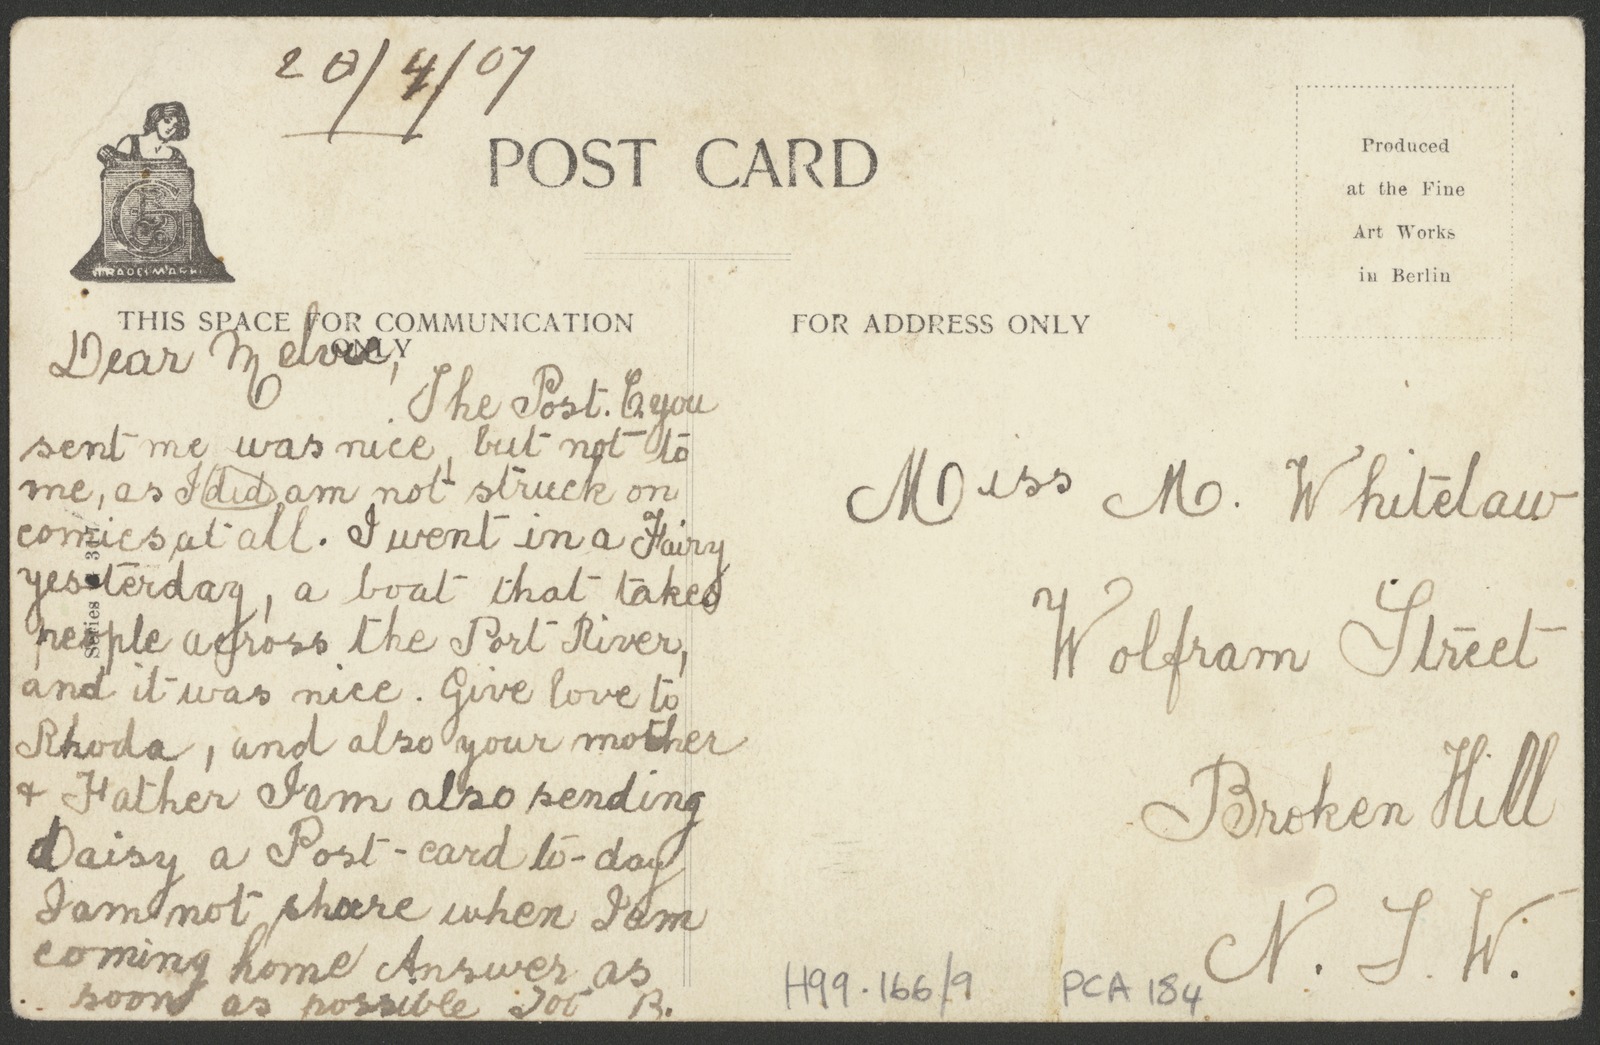 28/4/07
POST CARD
TRADE MARK
Produced
at the Fine
Art Works
in Berlin
THIS SPACE FOR COMMUNICATION
ONLY
Dear Melvie,
The Post. C. you
sent me was nice, but not to
me, as I did, am not struck on
comics at all. I went in a Fairy
yesterday, a boat that takes
people across the Port River,
and it was nice. Give love to
Rhoda, and also your mother
& Father I am also sending
Daisy a Post-card to-day
I am not shure when I am
coming home Answer as
soon as possible
B.
Series
FOR ADDRESS ONLY
Miss M. Whitelaw
Wolfram Street
Broken Hill
N. S. W.
H99.166/9 PCA 184